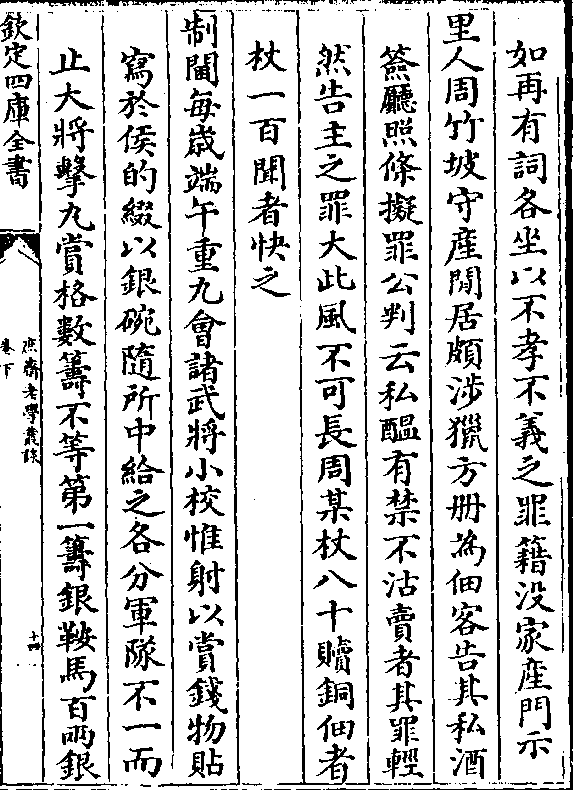 如再有詞各坐以不孝不義之罪籍沒家産門示
里人周竹坡守産閒居頗涉獵方冊為佃客告其私酒
簽廳照條擬罪公判云私醖有禁不沽賣者其罪輕
然告主之罪大此風不可長周某杖八十贖銅佃者
杖一百聞者快之
制閫每歳端午重九會諸武將小校惟射以賞錢物貼
寫於侯的綴以銀碗隨所中給之各分軍隊不一而
止大將擊九賞格數籌不等第一籌銀鞍馬百兩銀
欽定四庫全書
庶齋老學叢談
卷下
十四